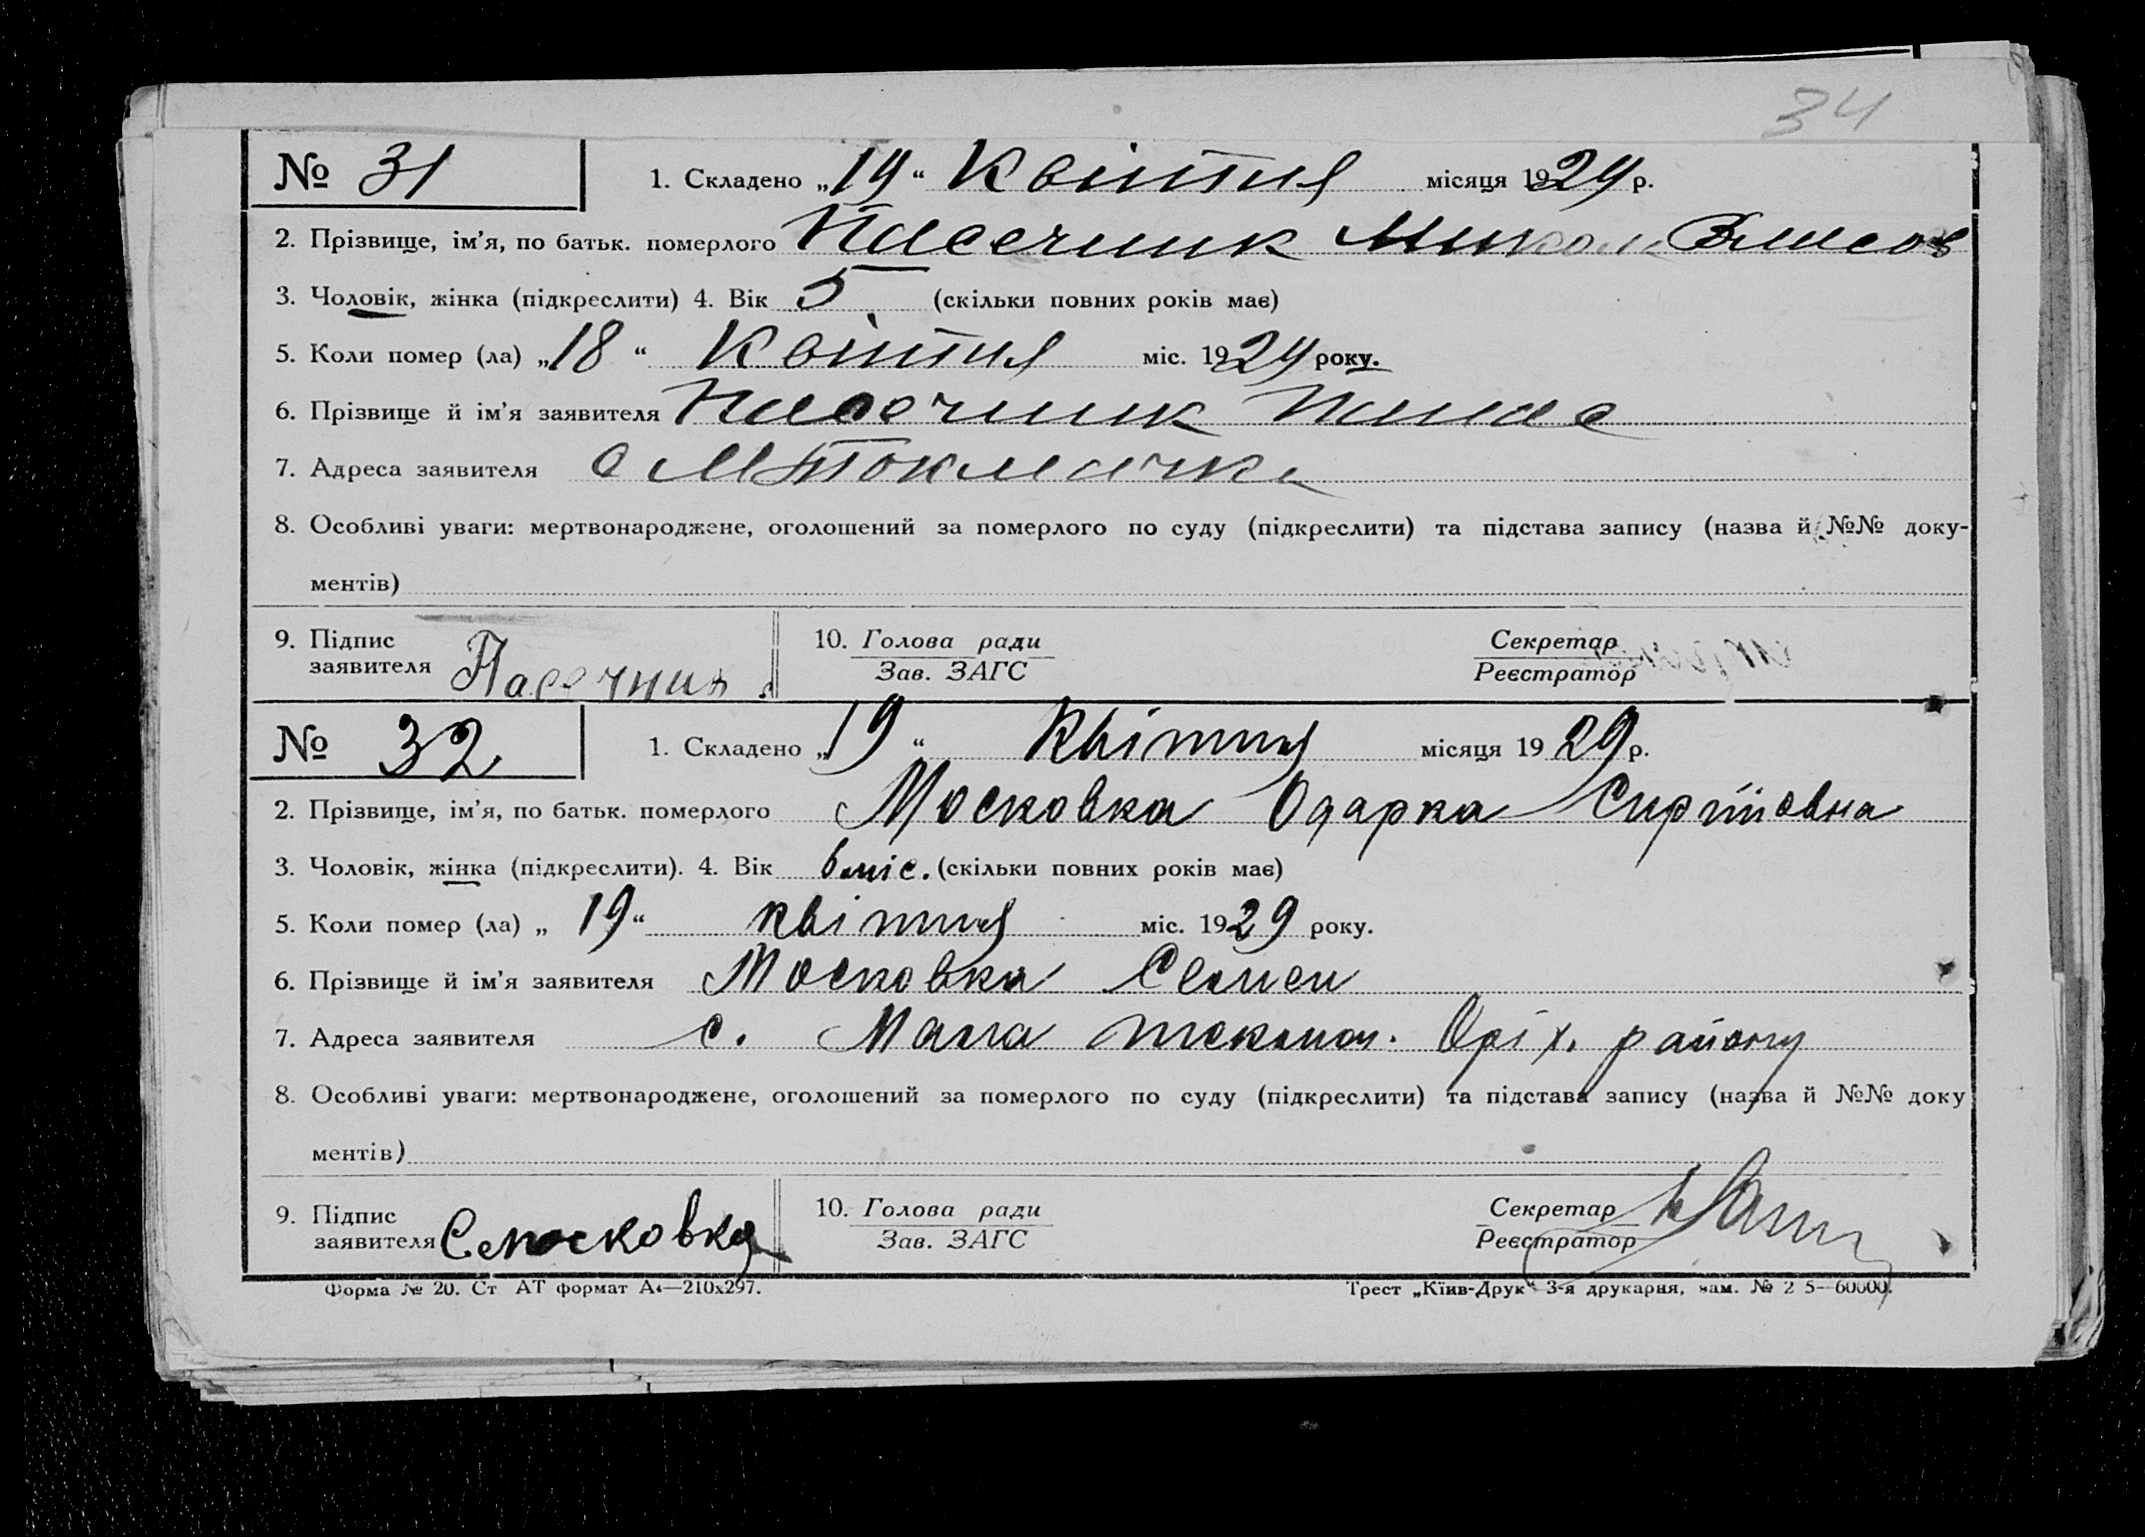 34
№ 31 1. Складено „19“ Квітня місяця 1929 р.
2. Прізвище, ім’я, по батьк. померлого Пасечник Микола Власов
3. Чоловік, жінка (підкреслити) 4. Вік 5 (скільки повних років має)
5. Коли помер (ла) „18“ Квітня міс. 1929 року.
6. Прізвище й ім’я заявителя Пасечник Панас
7. Адреса заявителя с МТокмачка
8. Особливі уваги: мертвонароджене, оголошений за померлого по суду (підкреслити) та підстава запису (назва й №№ доку-
ментів)
9. Підпис заявителя Пасечник 10. Голова ради Секретар
Зав. ЗАГС Реєстратор
№ 32 1. Складено „19“ Квітня місяця 1929 р.
2. Прізвище, ім’я, по батьк. померлого Московка Одарка Сиргіївна
3. Чоловік, жінка (підкреслити). 4. Вік 6 міс. (скільки повних років має)
5. Коли помер (ла) „19“ квітня міс. 1929 року.
6. Прізвище й ім’я заявителя Московка Семен
7. Адреса заявителя с. Мала токмач. Оріх. району
8. Особливі уваги: мертвонароджене, оголошений за померлого по суду (підкреслити) та підстава запису (назва й №№ доку
ментів)
9. Підпис заявителя С Московка 10. Голова ради Секретар
Зав. ЗАГС Реєстратор
Форма № 20. Ст АТ формат А4—210х297. Трест „Київ-Друк“ 3-я друкарня, зам. № 2 5—60000.